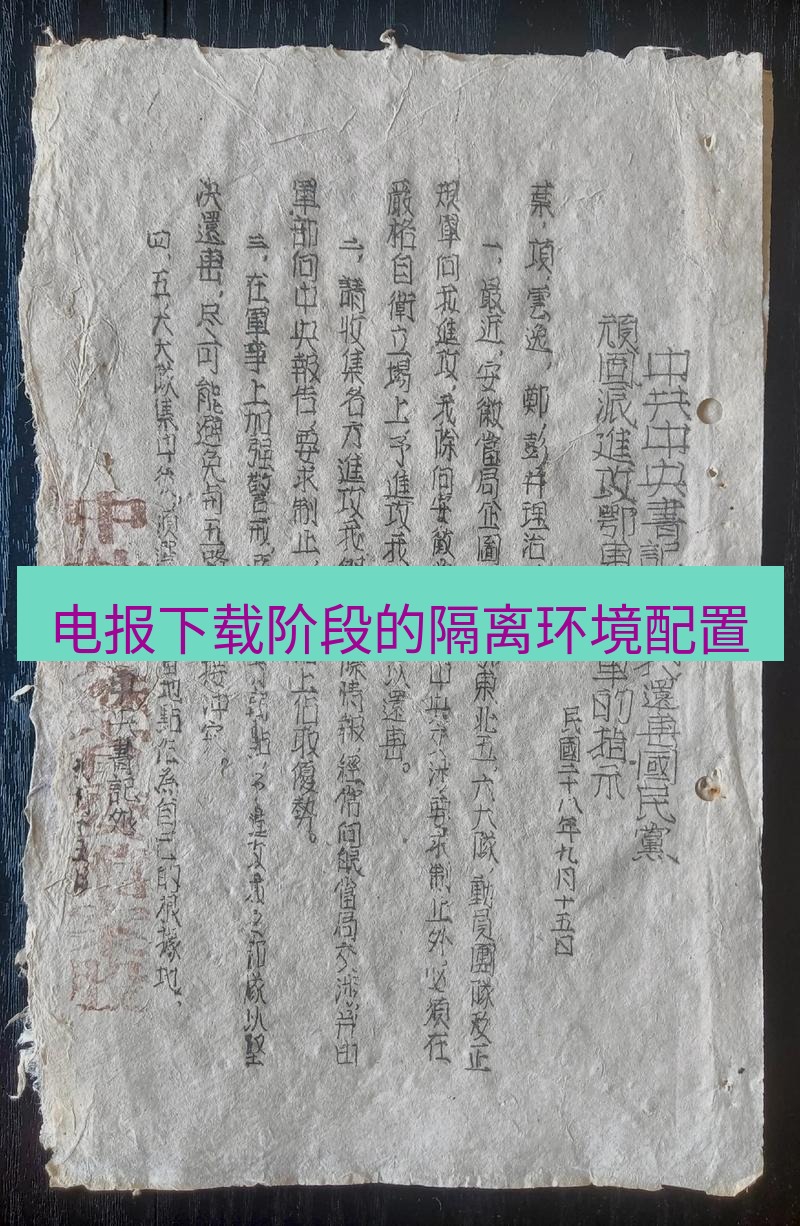 中共中央書記
我還擊國民黨
頑固派進攻鄂東
軍的指示
民國二十八年九月十五日
葉，項，雲逸，鄭，彭并理治，
一、最近，安徽當局企圖
東北五、六大隊，動員團隊及正
規軍向我進攻，我除向安徽
中央交涉，要求制止外，必須在
嚴格自衛立場上予進攻我
以還擊。
二、請收集各方進攻我
情報，經常向皖當局交涉，并由
軍部向中央報告，要求制止
上佔取優勢。
三、在軍事上加强警戒，
弱點，不進攻我之部隊以堅
決還擊，尽可能避免和五路
接冲突。
四、五，六大隊集中後，須
地點作為自己的根據地。
中央書記处
九月十五日
电报下载阶段的隔离环境配置